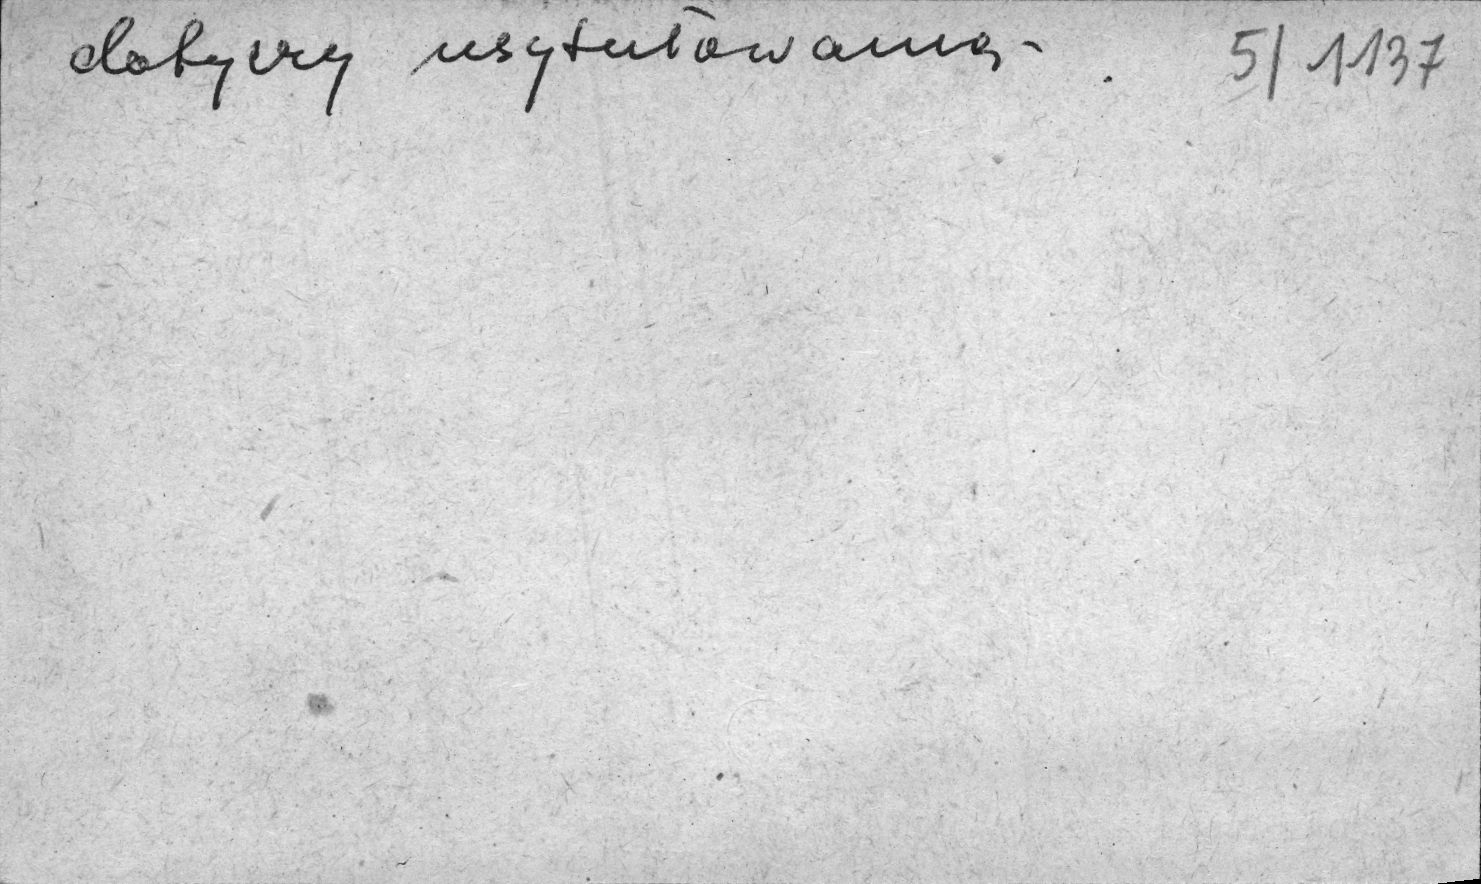 dotyczy usytułowania - . 5/1137